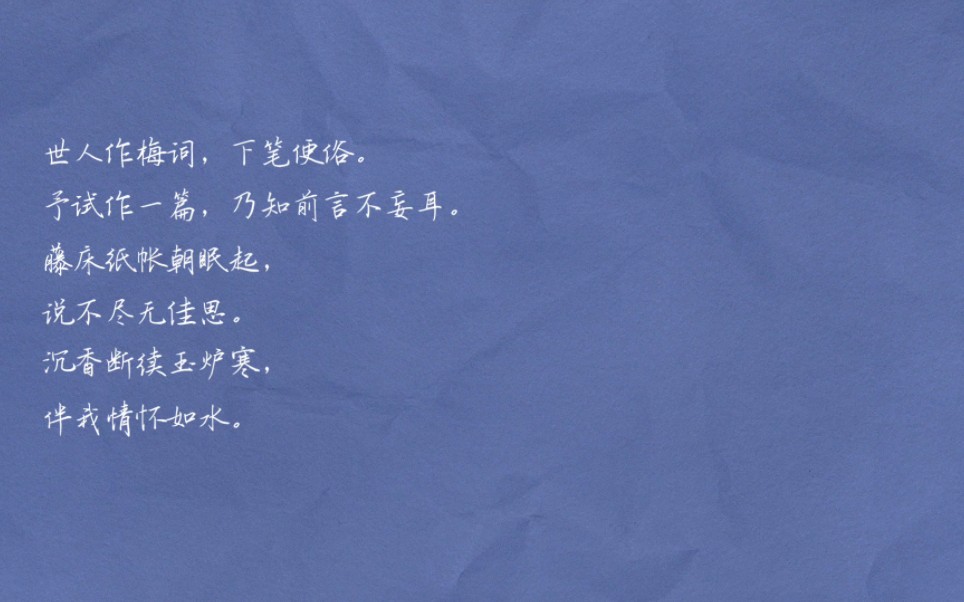 世人作梅词，下笔便俗。
予试作一篇，乃知前言不妄耳。
藤床纸帐朝眠起，
说不尽无佳思。
沉香断续玉炉寒，
伴我情怀如水。